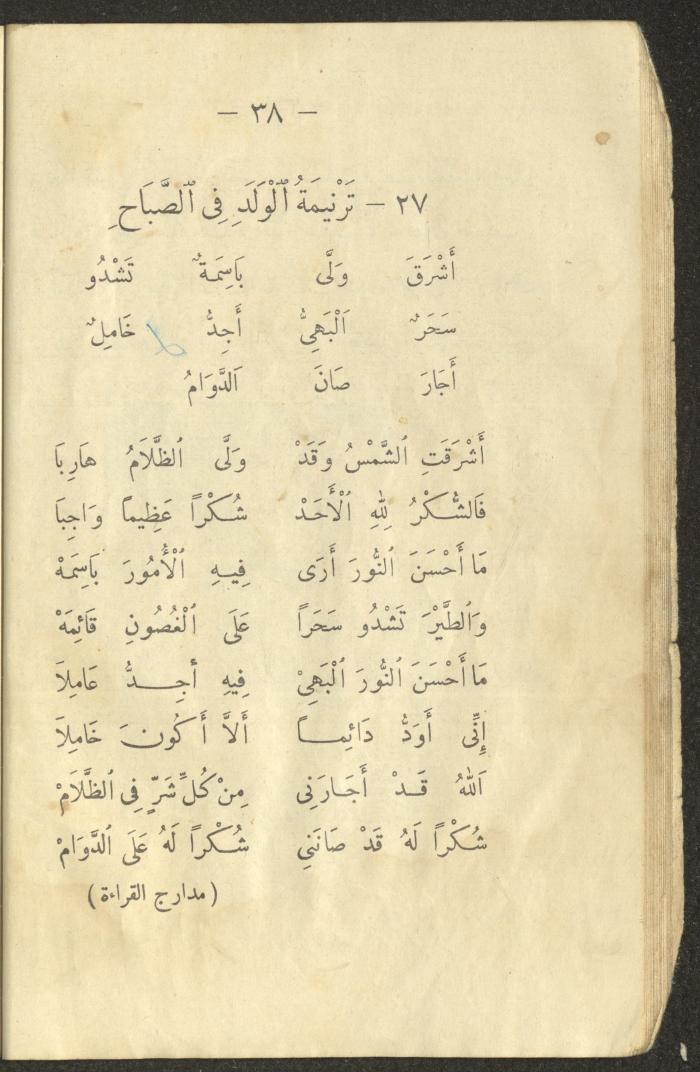 — ٣٨ —
٢٧ — تَرْنِيمَةُ ٱلْوَلَدِ فِى ٱلصَّبَاحِ
أَشْرَقَ وَلَّى بَاسِمَةٌ تَشْدُو
سَحَرٌ اَلْبَهِىُّ أَجِدُّ خَامِلٌ
أَجَارَ صَانَ اَلدَّوَامُ
أَشْرَقَتِ ٱلشَّمْسُ وَقَدْ وَلَّى ٱلظَّلَامُ هَارِبَا
فَالشُّكْرُ لِلهِ ٱلْأَحَدْ شُكْرًا عَظِيمًا وَاجِبَا
مَا أَحْسَنَ ٱلنُّورَ أَرَى فِيهِ ٱلْأُمُورَ بَاسِمَهْ
وَٱلطَّيْرَ تَشْدُو سَحَرًا عَلَى ٱلْغُصُونِ قَائِمَهْ
مَا أَحْسَنَ ٱلنُّورَ ٱلْبَهِىْ فِيهِ أَجِدُّ عَامِلَا
إِنِّى أَوَدُّ دَائِمًا أَلَّا أَكُونَ خَامِلَا
اَللهُ قَدْ أَجَارَنِى مِنْ كُلِّ شَرٍّ فِى ٱلظَّلَامْ
شُكْرًا لَهُ قَدْ صَانَنِى شُكْرًا لَهُ عَلَى ٱلدَّوَامْ
(مدارج القراءة)